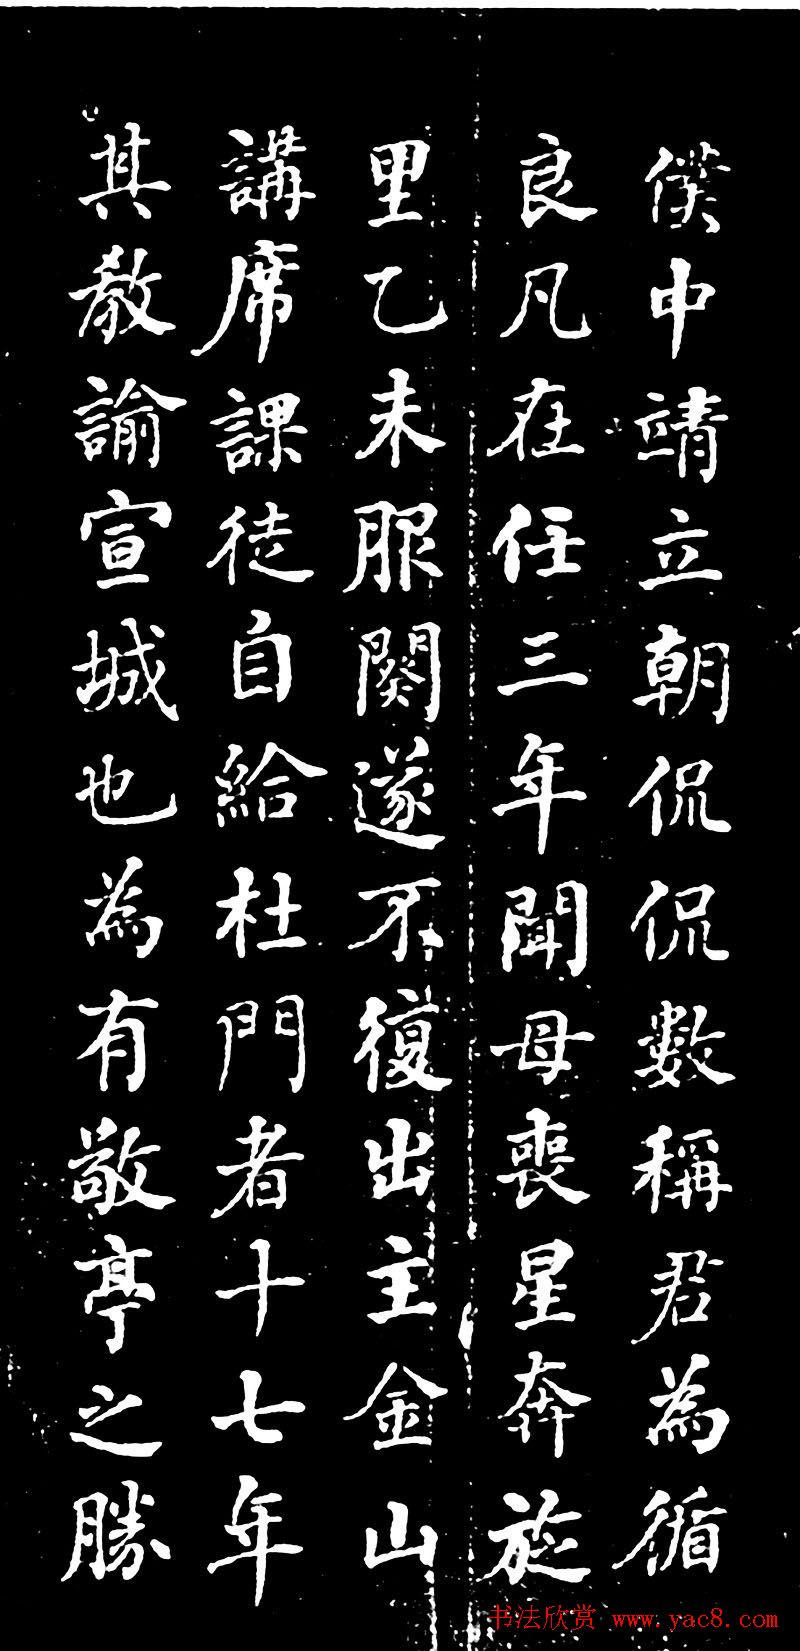 僕中靖立朝侃侃數稱君為循
良凡在任三年聞母喪星奔旋
里乙未服闋遂不復出主金山
講席課徒自給杜門者十七年
其教諭宣城也為有敬亭之勝
书法欣赏 www.yac8.com